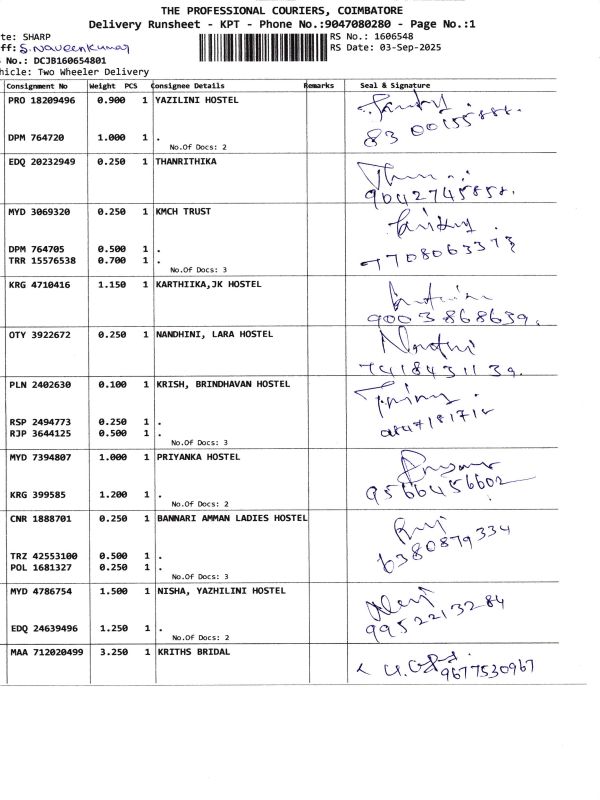 THE PROFESSIONAL COURIERS, COIMBATORE
Delivery Runsheet - KPT - Phone No.:9047080280 - Page No.:1
te: SHARP
RS No.: 1606548
ff: S. Naveenkumar
RS Date: 03-Sep-2025
No.: DCJB160654801
hicle: Two Wheeler Delivery
Consignment No Weight PCS Consignee Details Remarks Seal & Signature
PRO 18209496 0.900 1 YAZILINI HOSTEL
DPM 764720 1.000 1 .
No.Of Docs: 2
EDQ 20232949 0.250 1 THANRITHIKA
9042745858.
MYD 3069320 0.250 1 KMCH TRUST
DPM 764705 0.500 1 .
TRR 15576538 0.700 1 .
7708063373
No.Of Docs: 3
KRG 4710416 1.150 1 KARTHIIKA,JK HOSTEL
9003868639.
OTY 3922672 0.250 1 NANDHINI, LARA HOSTEL
7418431139.
PLN 2402630 0.100 1 KRISH, BRINDHAVAN HOSTEL
RSP 2494773 0.250 1 .
RJP 3644125 0.500 1 .
No.Of Docs: 3
MYD 7394807 1.000 1 PRIYANKA HOSTEL
KRG 399585 1.200 1 .
9566456602
No.Of Docs: 2
CNR 1888701 0.250 1 BANNARI AMMAN LADIES HOSTEL
TRZ 42553100 0.500 1 .
6380879334
POL 1681327 0.250 1 .
No.Of Docs: 3
MYD 4786754 1.500 1 NISHA, YAZHILINI HOSTEL
EDQ 24639496 1.250 1 .
9952213284
No.Of Docs: 2
MAA 712020499 3.250 1 KRITHS BRIDAL
9677530967